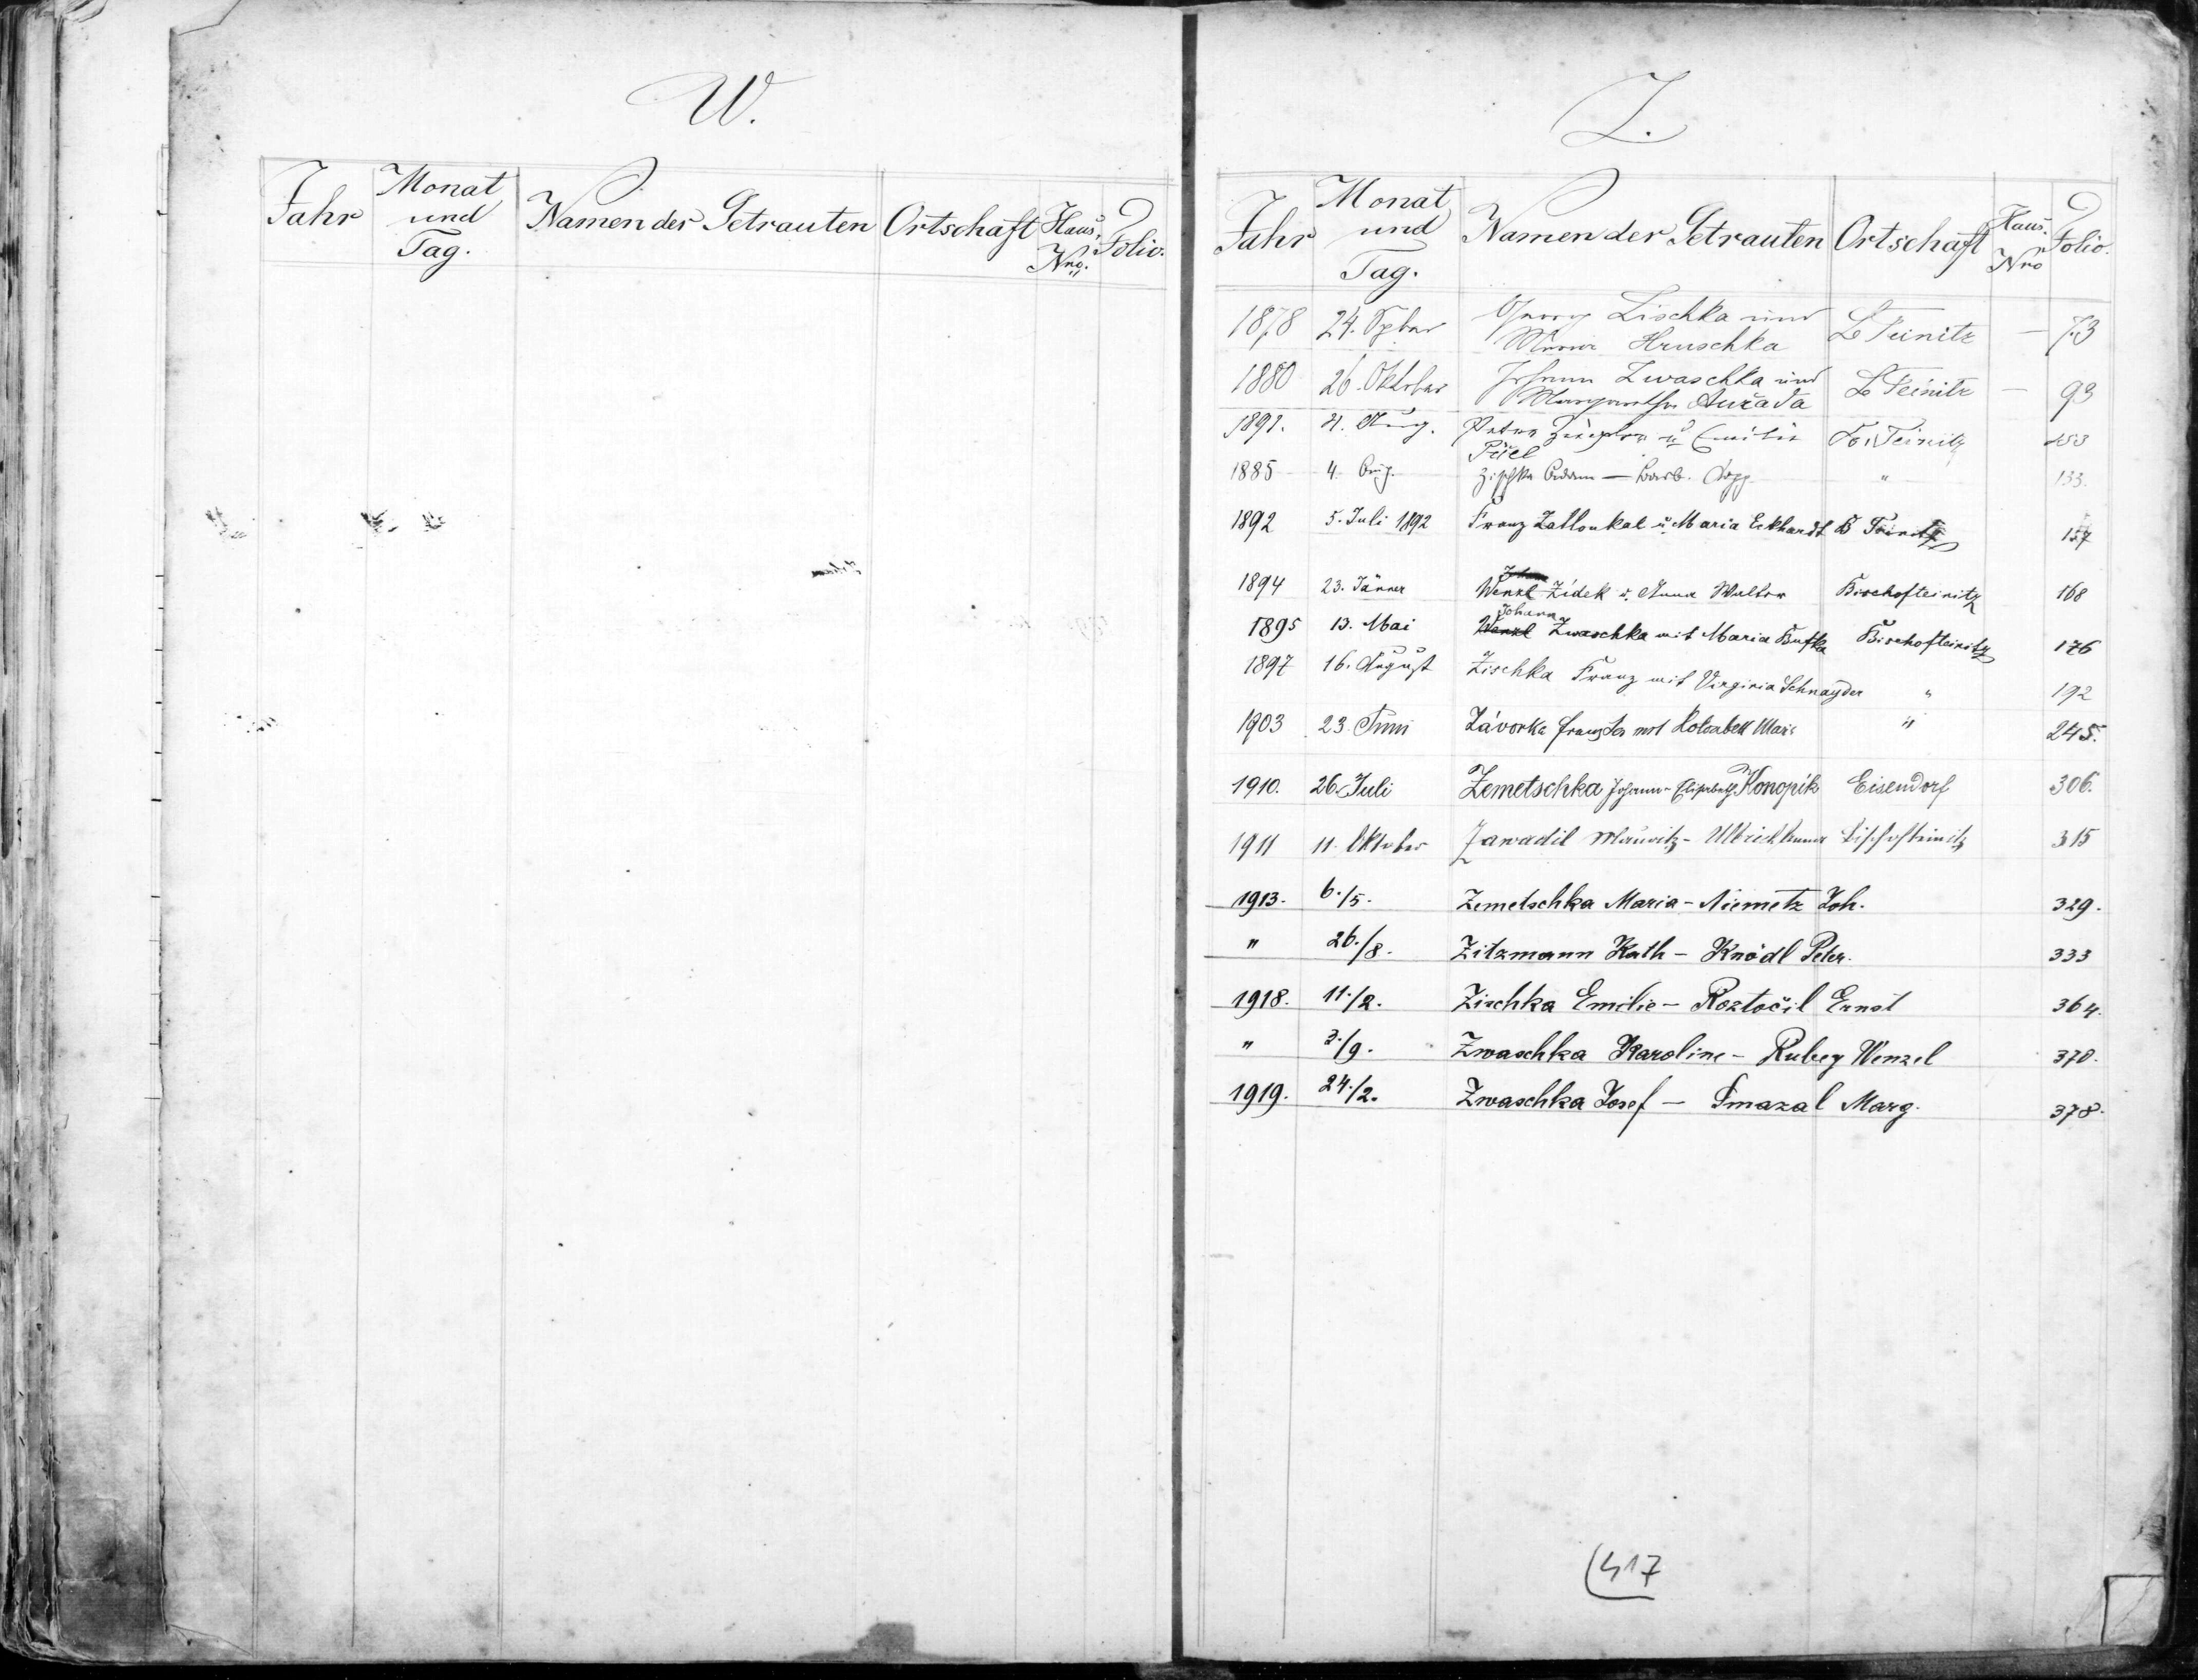 W.
Jahr Monat und Tag. Namen der Getrauten Ortschaft Haus Nro. Folio.
Z.
Jahr Monat und Tag. Namen der Getrauten Ortschaft Haus Nro Folio.
1878 24. Georg Zischka und B Teinitz — 73
Hruschka
1880 26. Oktober Johann Zwaschka und B Teinitz — 93
Margaretha Aurada
1891. Aug. Peter u Emilie Teinitz 153
1885 4. Aug. Zischka Adam — Barb. " 133.
1892 5. Juli 1892 Franz Zatloukal u. Maria Eckhardt B Teinitz 157
1894 23. Jänner Wenzl Zídek u. Anna Walter Bischofteinitz 168
Johann
1895 13. Mai Wenzl Zwaschka mit Maria Bufka Bischofteinitz 176
1897 16. August Zischka Franz mit Virginia Schnayder " 192
1903 23. Juni Závorka mit " 245.
1910. 26. Juli Zemetschka Johann - Elisabeth Konopik Eisendorf 306.
1911 11. Oktober Zawadil Mauritz - Ulbrich Anna Bischofteinitz 315
1913. 6./5. Zemetschka Maria - Niemetz Joh. 329.
" 26./8. Zitzmann Kath - Knödl Peter. 333
1918. 11./2. Zischka Emilie - Roztočil Ernst 364.
" 3./9. Zwaschka Karoline - Rubey Wenzel 370.
1919. 24./2. Zwaschka Josef - Smazal Marg. 378.
417